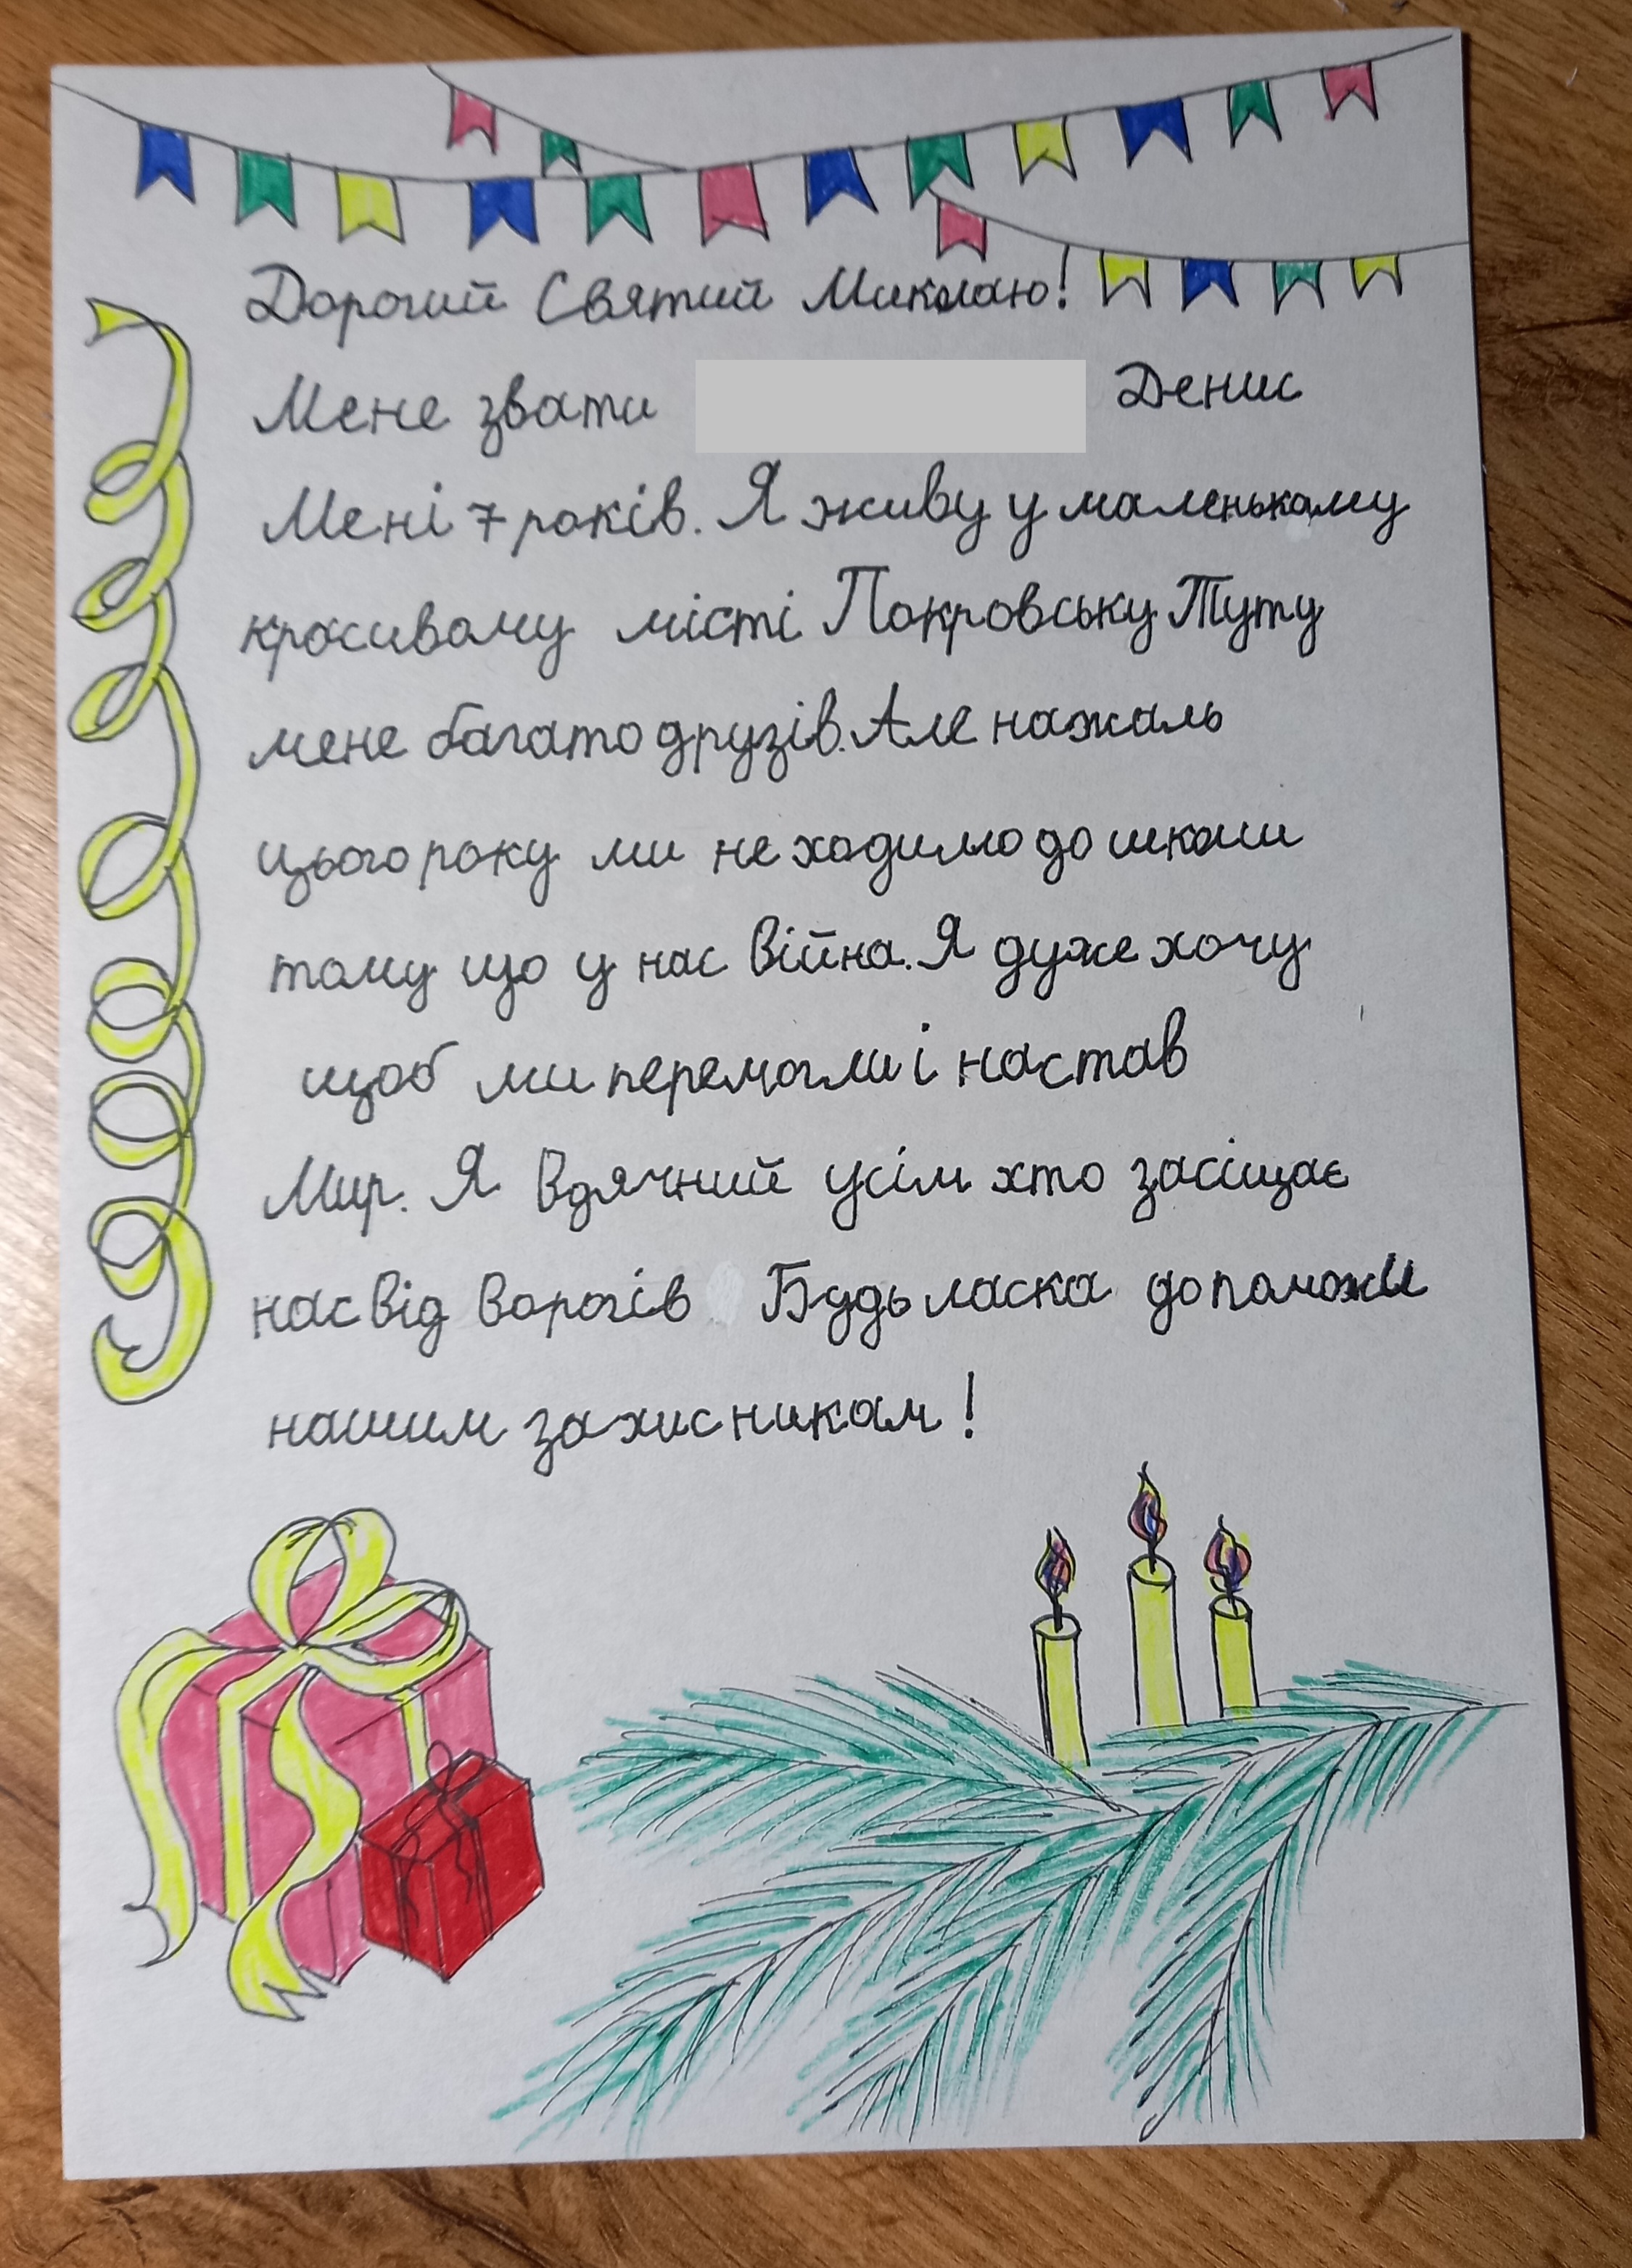 Дорогий Святий Миколаю!
Мене звати Денис
Мені 7 років. Я живу у маленькому
красивому місті Покровську Тут у
мене багато друзів. Але нажаль
цього року ми не ходимо до школи
тому що у нас війна. Я дуже хочу
щоб ми перемогли і настав
Мир. Я вдячний усім хто засіщає
нас від ворогів Будь ласка допоможи
нашим захисникам!